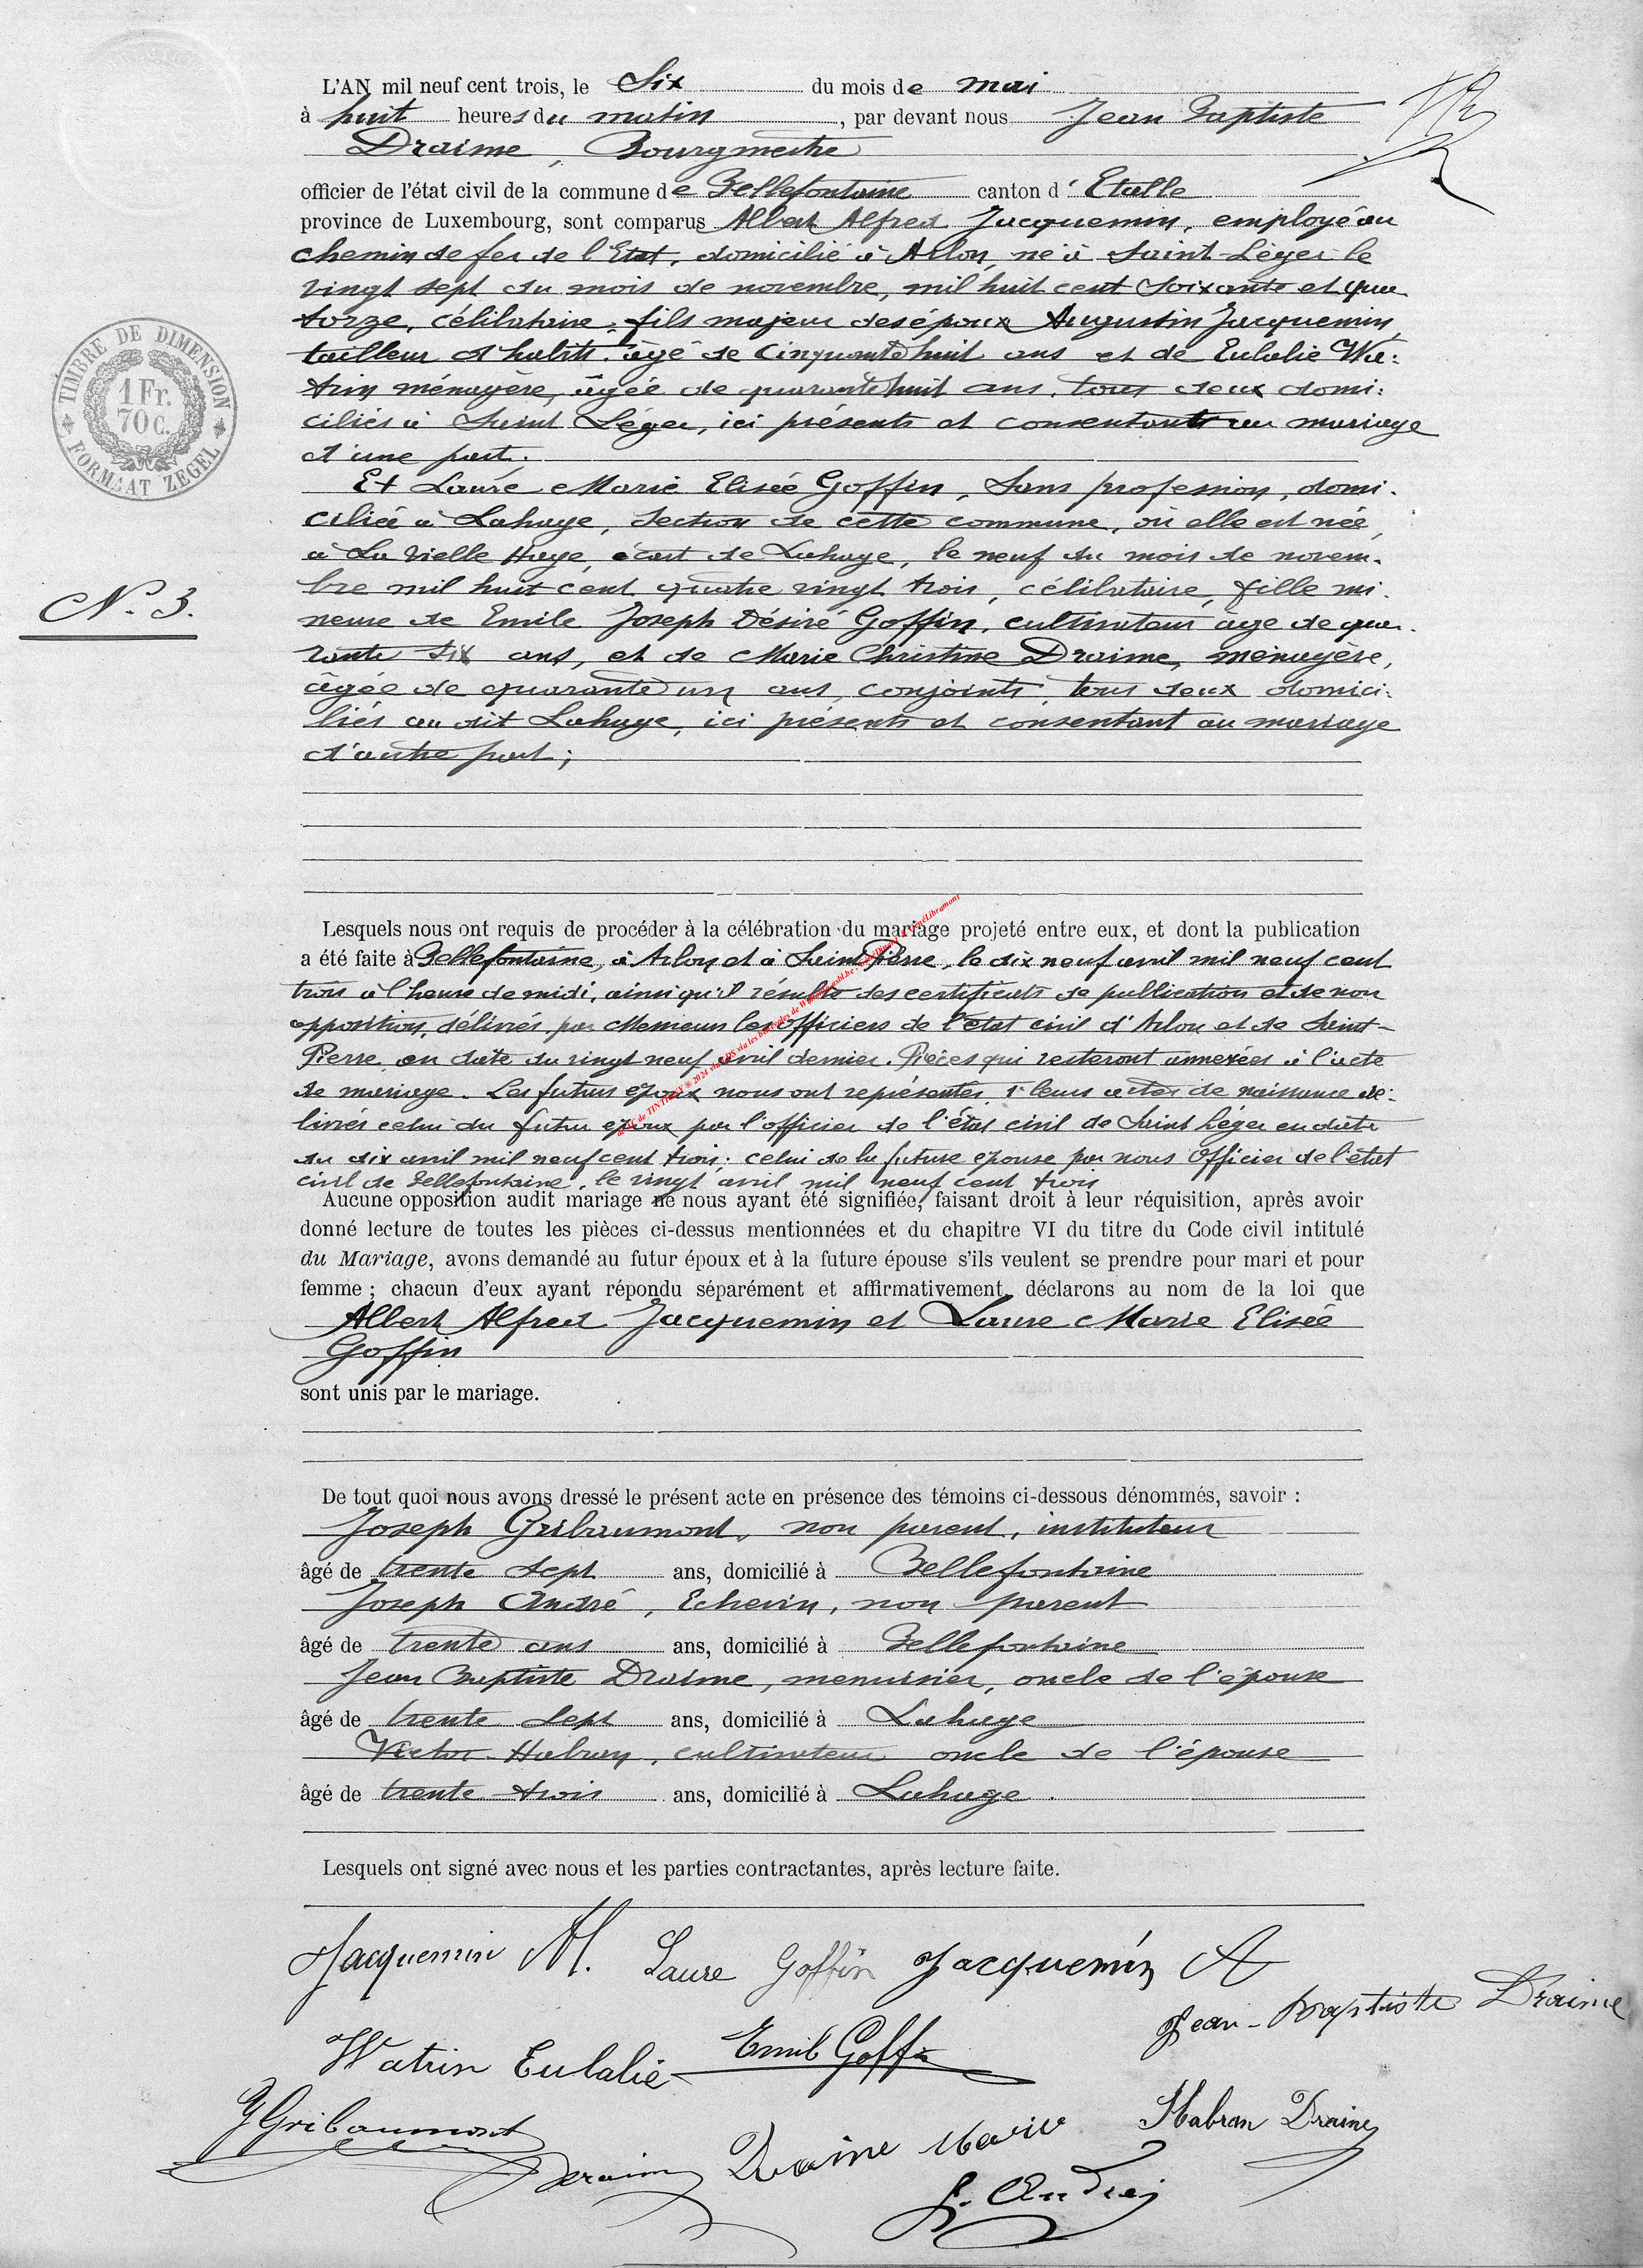 L'AN mil neuf cent trois, le Six du mois de mai
à huit heures du matin, par devant nous Jean Baptiste
Draime, Bourgmestre
officier de l'état civil de la commune de Bellefontaine canton d'Etalle
province de Luxembourg, sont comparus Albert Alfred Jacquemin, employé au
chemin de fer de l'Etat, domicilié à Arlon, né à Saint-Léger le
vingt sept du mois de novembre, mil huit cent soixante et qua
torze, célibataire, fils majeur des époux Augustin Jacquemin,
tailleur d'habits, âgé de cinquante huit ans et de Eulalie Wa-
trin ménagère, âgée de quarante huit ans, tous deux domi-
ciliés à Saint Léger, ici présents et consentants au mariage
d'une part.
Et Laure Marie Elisée Goffin, Sans profession, domi-
ciliée à Lahage, section de cette commune, où elle est née,
à La Vielle Haye, écart de Lahage, le neuf du mois de novem-
bre mil huit cent quatre vingt trois, célibataire, fille mi-
neure de Emile Joseph Désiré Goffin, cultivateur âgé de qua-
rante six ans, et de Marie Christine Draime, ménagère,
âgée de quarante un ans, conjoints, tous deux domici-
liés au dit Lahage, ici présents et consentant au mariage
d'autre part;
TIMBRE DE DIMENSION
1 Fr.
70 c.
FORMAAT ZEGEL
N° 3.
Lesquels nous ont requis de procéder à la célébration du mariage projeté entre eux, et dont la publication
a été faite à Bellefontaine, à Arlon et à Saint Pierre, le dix neuf avril mil neuf cent
trois à l'heure de midi, ainsi qu'il résulte des certificats de publication et de non
opposition, délivrés par Messieurs les officiers de l'état civil d'Arlon et de Saint-
Pierre en date du vingt neuf avril dernier. Pièces qui resteront annexées à l'acte
de mariage. Les futurs époux nous ont représentés, 1° leurs actes de naissance dé-
livrés celui du futur époux par l'officier de l'état civil de Saint Léger en date
du dix avril mil neuf cent trois; celui de la future épouse par nous Officier de l'état
civil de Bellefontaine, le vingt avril mil neuf cent trois
Aucune opposition audit mariage ne nous ayant été signifiée, faisant droit à leur réquisition, après avoir
donné lecture de toutes les pièces ci-dessus mentionnées et du chapitre VI du titre du Code civil intitulé
du Mariage, avons demandé au futur époux et à la future épouse s'ils veulent se prendre pour mari et pour
femme ; chacun d'eux ayant répondu séparément et affirmativement, déclarons au nom de la loi que
Albert Alfred Jacquemin et Laure Marie Elisée
Goffin
sont unis par le mariage.
De tout quoi nous avons dressé le présent acte en présence des témoins ci-dessous dénommés, savoir :
Joseph Gribaumont, non parent, instituteur
âgé de trente sept ans, domicilié à Bellefontaine
Joseph André, Echevin, non parent
âgé de trente ans ans, domicilié à Bellefontaine
Jean Baptiste Draime, menuisier, oncle de l'épouse
âgé de trente sept ans, domicilié à Lahage
Victor Habran, cultivateur oncle de l'épouse
âgé de trente trois ans, domicilié à Lahage.
Lesquels ont signé avec nous et les parties contractantes, après lecture faite.
Jacquemin Al. Laure Goffin Jacquemin A
Jean-Baptiste Draime
Watrin Eulalie Emile Goffin
J Gribaumont Habran Draime
Draime Draime Marie
J. André